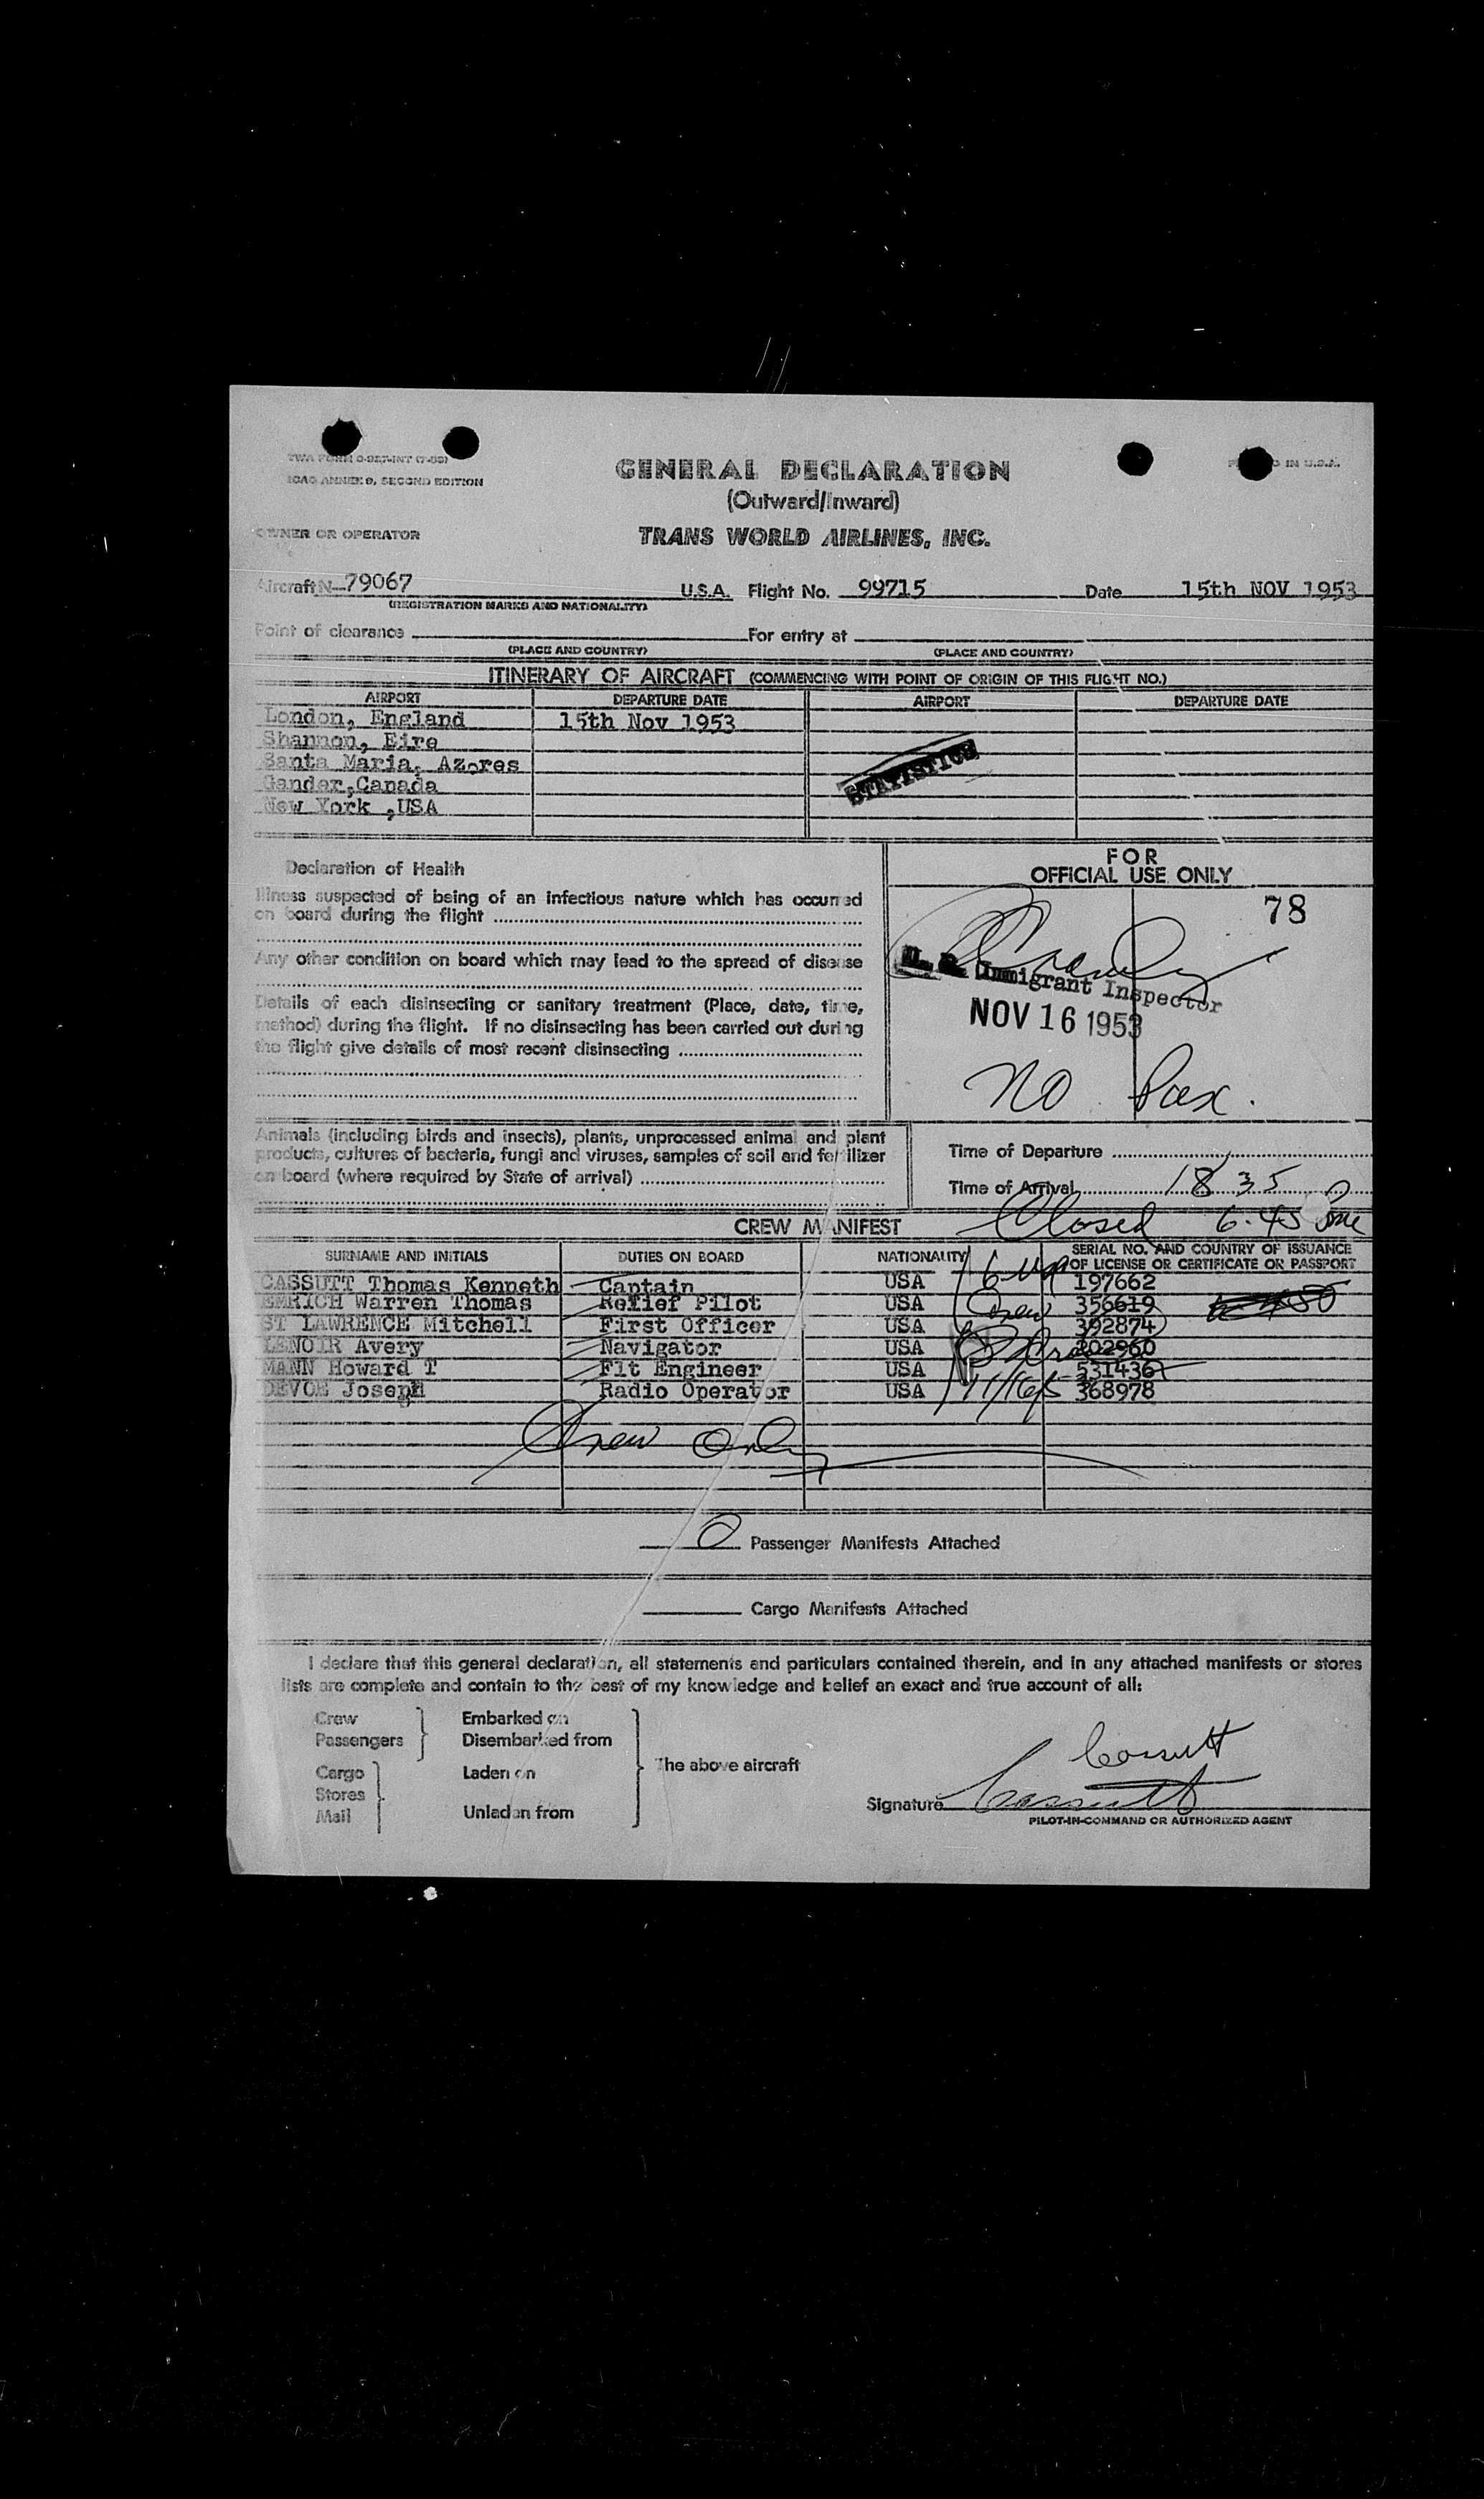 TWA FORM
ICAO ANNEX 9, SECOND EDITION
IN U.S.A.
GENERAL DECLARATION
(Outward/Inward)
OWNER OR OPERATOR
TRANS WORLD AIRLINES, INC.
Aircraft N-79067 U.S.A. Flight No. 99715 Date 15th NOV 1953
(REGISTRATION MARKS AND NATIONALITY)
Point of clearance For entry at
(PLACE AND COUNTRY) (PLACE AND COUNTRY)
ITINERARY OF AIRCRAFT (COMMENCING WITH POINT OF ORIGIN OF THIS FLIGHT NO.)
AIRPORT DEPARTURE DATE AIRPORT DEPARTURE DATE
London, England 15th Nov 1953
Shannon, Eire
Santa Maria, Azores
Gander,Canada
New York ,USA
STATISTICS
Declaration of Health
Illness suspected of being of an infectious nature which has occurred
on board during the flight
Any other condition on board which may lead to the spread of disease
Details of each disinsecting or sanitary treatment (Place, date, time,
method) during the flight. If no disinsecting has been carried out during
the flight give details of most recent disinsecting
FOR
OFFICIAL USE ONLY
78
U. S. Immigrant Inspector
NOV 16 1953
No Pax.
Animals (including birds and insects), plants, unprocessed animal and plant
products, cultures of bacteria, fungi and viruses, samples of soil and fertilizer
on board (where required by State of arrival)
Time of Departure
Time of Arrival 1835
Closed 6.45
CREW MANIFEST
SURNAME AND INITIALS DUTIES ON BOARD NATIONALITY SERIAL NO. AND COUNTRY OF ISSUANCE
OF LICENSE OR CERTIFICATE OR PASSPORT
CASSUTT Thomas Kenneth Captain USA 197662
EMRICH Warren Thomas Relief Pilot USA Crew 356619
ST LAWRENCE Mitchell First Officer USA 392874
LENOIR Avery Navigator USA 202960
MANN Howard T Flt Engineer USA 531436
DEVOE Joseph Radio Operator USA 11/16/5 368978
Crew Only
0 Passenger Manifests Attached
Cargo Manifests Attached
I declare that this general declaration, all statements and particulars contained therein, and in any attached manifests or stores
lists are complete and contain to the best of my knowledge and belief an exact and true account of all:
Crew Embarked on
Passengers Disembarked from
Cargo Laden on
Stores
Mail Unladen from
The above aircraft
Cassutt
Signature Cassutt
PILOT-IN-COMMAND OR AUTHORIZED AGENT